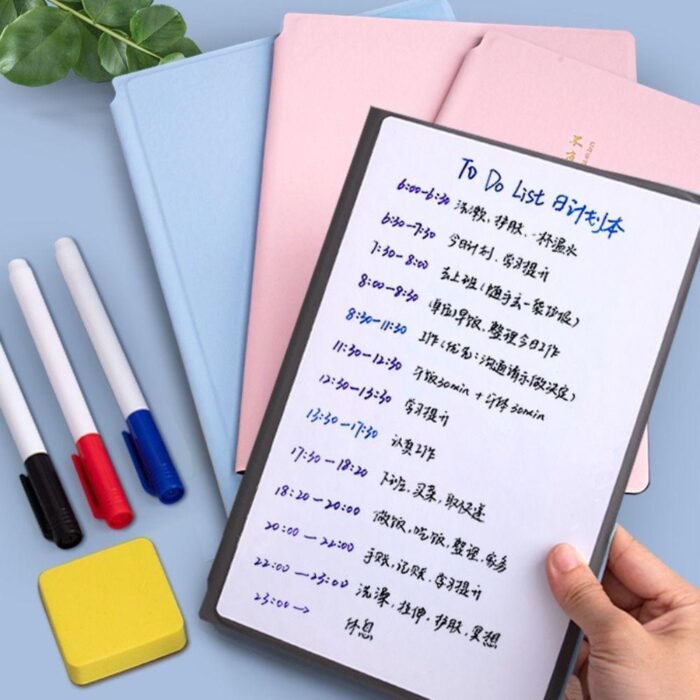 To Do List 日计划本
6:00-6:30 洗漱,护肤,一杯温水
6:30-7:30 今日计划、学习提升
7:30-8:00 去上班(随手丢一袋垃圾)
8:00-8:30 (单位)早饭、整理今日工作
8:30-11:30 工作(优先:沟通请示做决定)
11:30-12:30 午饭30min + 午休30min
12:30-13:30 学习提升
13:30-17:30 认真工作
17:30-18:20 下班,买菜,取快递
18:20-20:00 做饭,吃饭,整理,家务
20:00-22:00 手账,记账,学习提升
22:00-23:00 洗澡,拉伸,护肤,冥想
23:00→ 休息